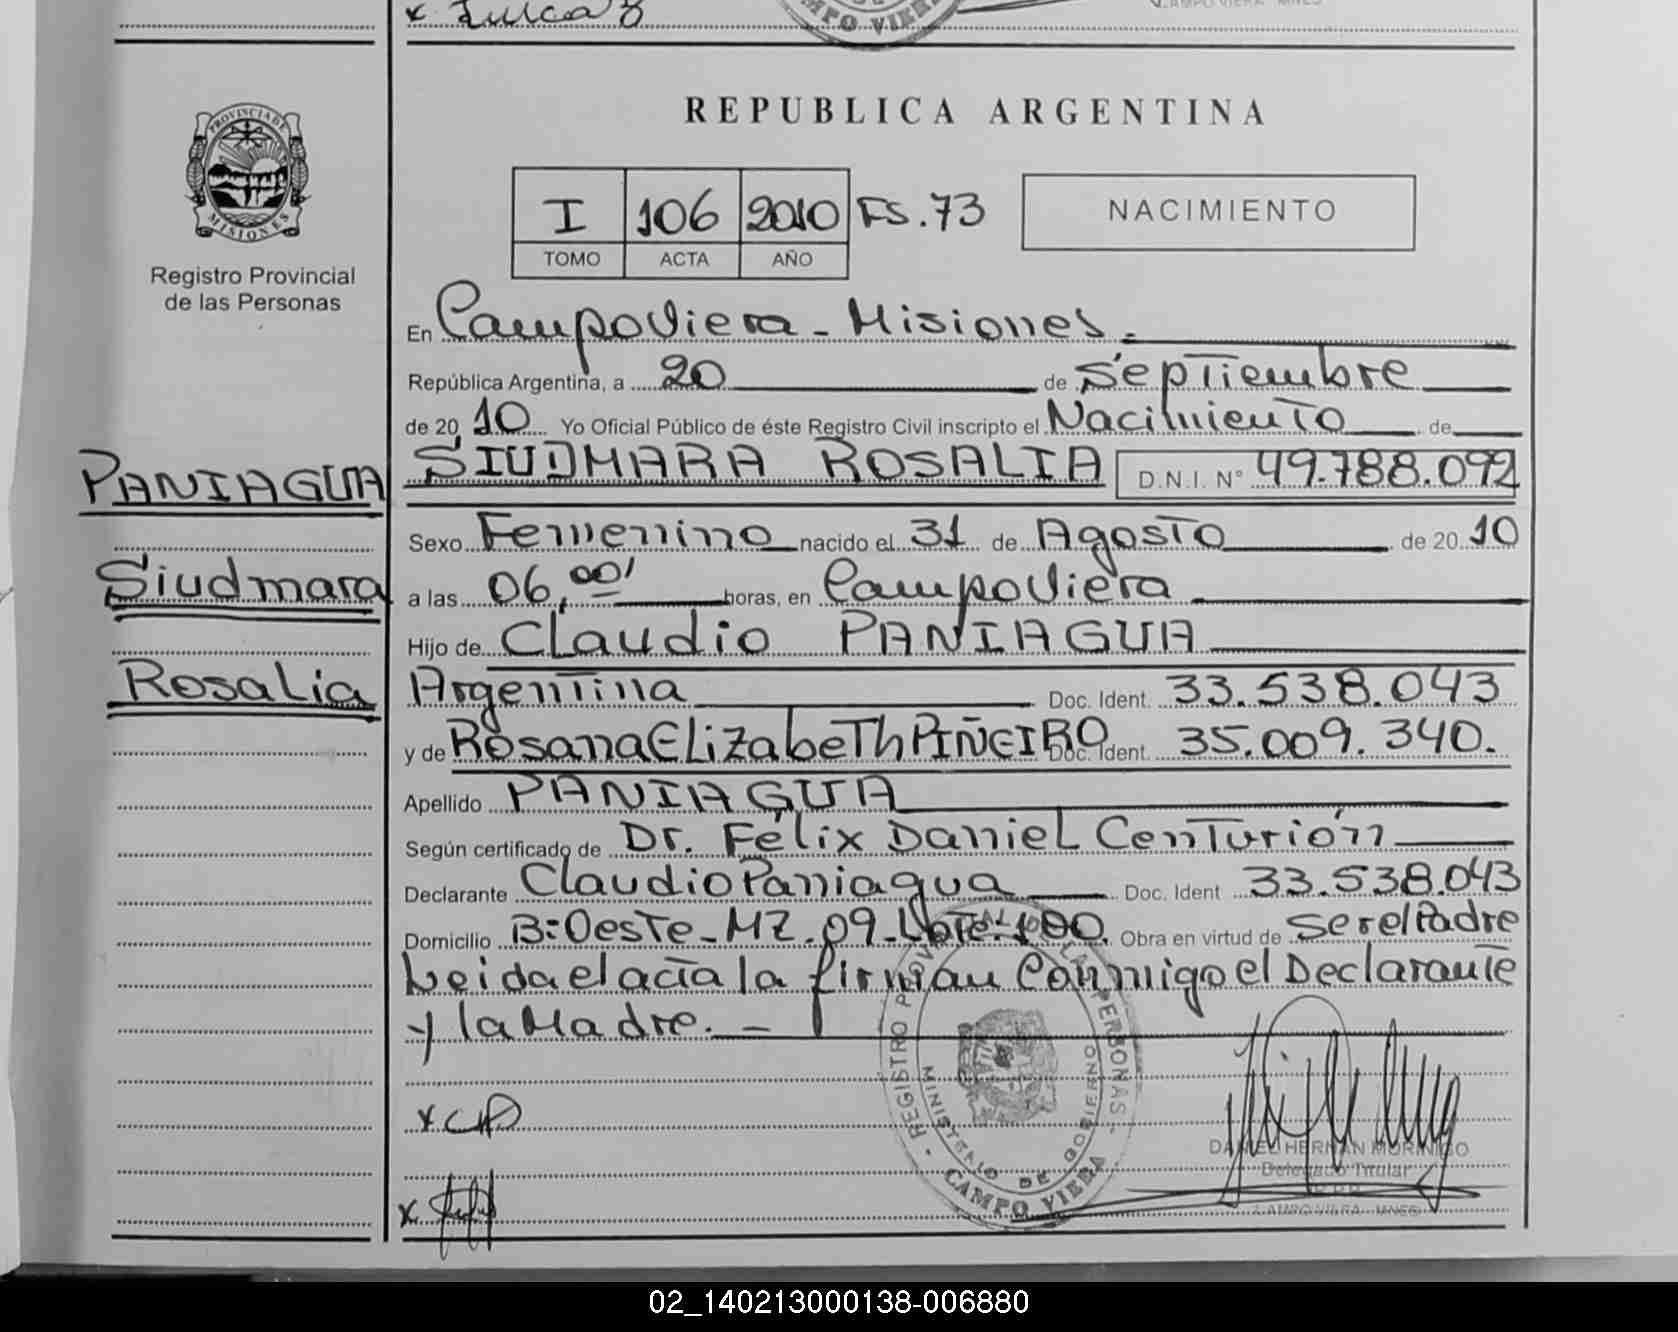 x Zulca B
CAMPO VIERA
CAMPO VIERA - MNES
PROVINCIA DE
MISIONES
Registro Provincial
de las Personas
REPUBLICA ARGENTINA
I 106 2010 FS.73
TOMO ACTA AÑO
NACIMIENTO
En Campo Viera - Misiones.
República Argentina, a 20 de Septiembre
de 20 10 Yo Oficial Público de éste Registro Civil inscripto el Nacimiento de
PANIAGUA
SIUDMARA ROSALIA D.N.I. N° 49.788.092
Sexo Femenino nacido el 31 de Agosto de 20 10
Siudmara
a las 06,00' horas, en Campo Viera
Hijo de Claudio PANIAGUA
Rosalia
Argentina Doc. Ident. 33.538.043
y de Rosana Elizabeth PIÑEIRO Doc. Ident. 35.009.340.
Apellido PANIAGUA
Según certificado de Dr. Félix Daniel Centurión
Declarante Claudio Paniagua Doc. Ident 33.538.043
Domicilio B: Oeste - MZ. 09 - Lote: 100. Obra en virtud de ser el Padre
Leida el acta la firman Conmigo el Declarante
y la Madre. -
REGISTRO PROVINCIAL DE LAS PERSONAS
MINISTERIO DE GOBIERNO
- CAMPO VIERA -
x CP
x
DANIEL HERNAN MORINIGO
Delegado Titular
CAMPO VIERA - MNES
02_140213000138-006880